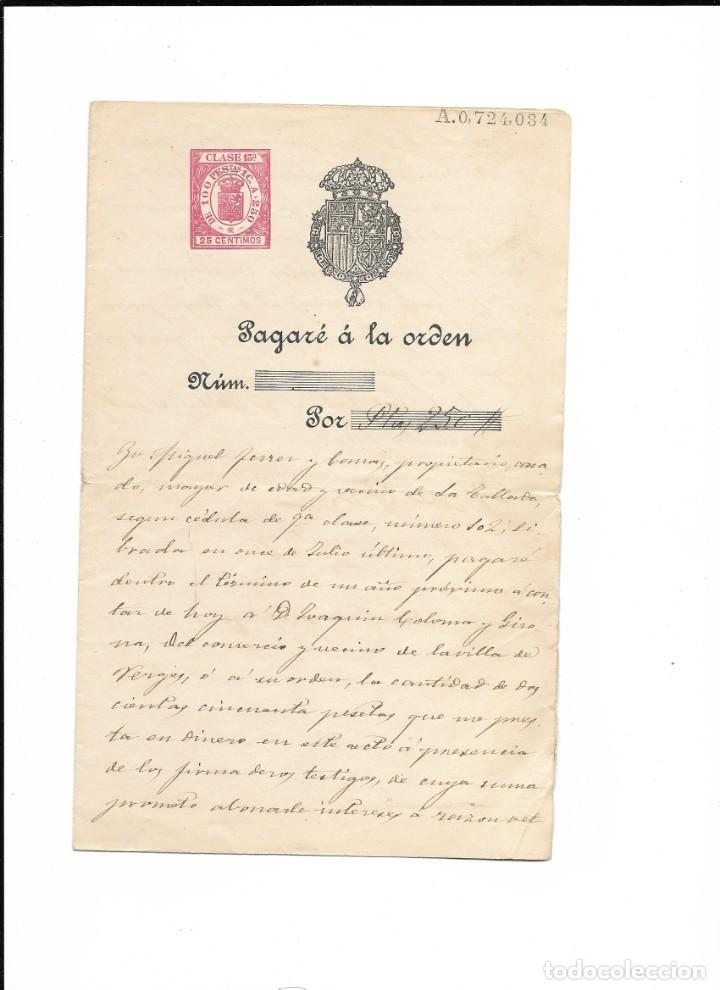 A.0,724,034
CLASE 15ª
DE 100 PESTAS 1C. A 250
25 CENTIMOS
Pagaré á la orden
Núm.
Por Ptas 250 #
Yo Miguel Ferrer y Comas, propietario, casa
do, mayor de edad y vecino de La Tallada,
segun cédula de 9ª clase, número 102; li
brada en once de Julio último, pagaré
dentro el término de un año próximo á con
tar de hoy á D. Joaquin Coloma y Giro
na, del comercio y vecino de la villa de
Verges, ó á su orden, la cantidad de dos
cientas cincuenta pesetas que me pres
ta en dinero en este acto á presencia
de los firmaderos testigos, de cuya suma
prometo abonarle intereses á razon del
todocoleccion